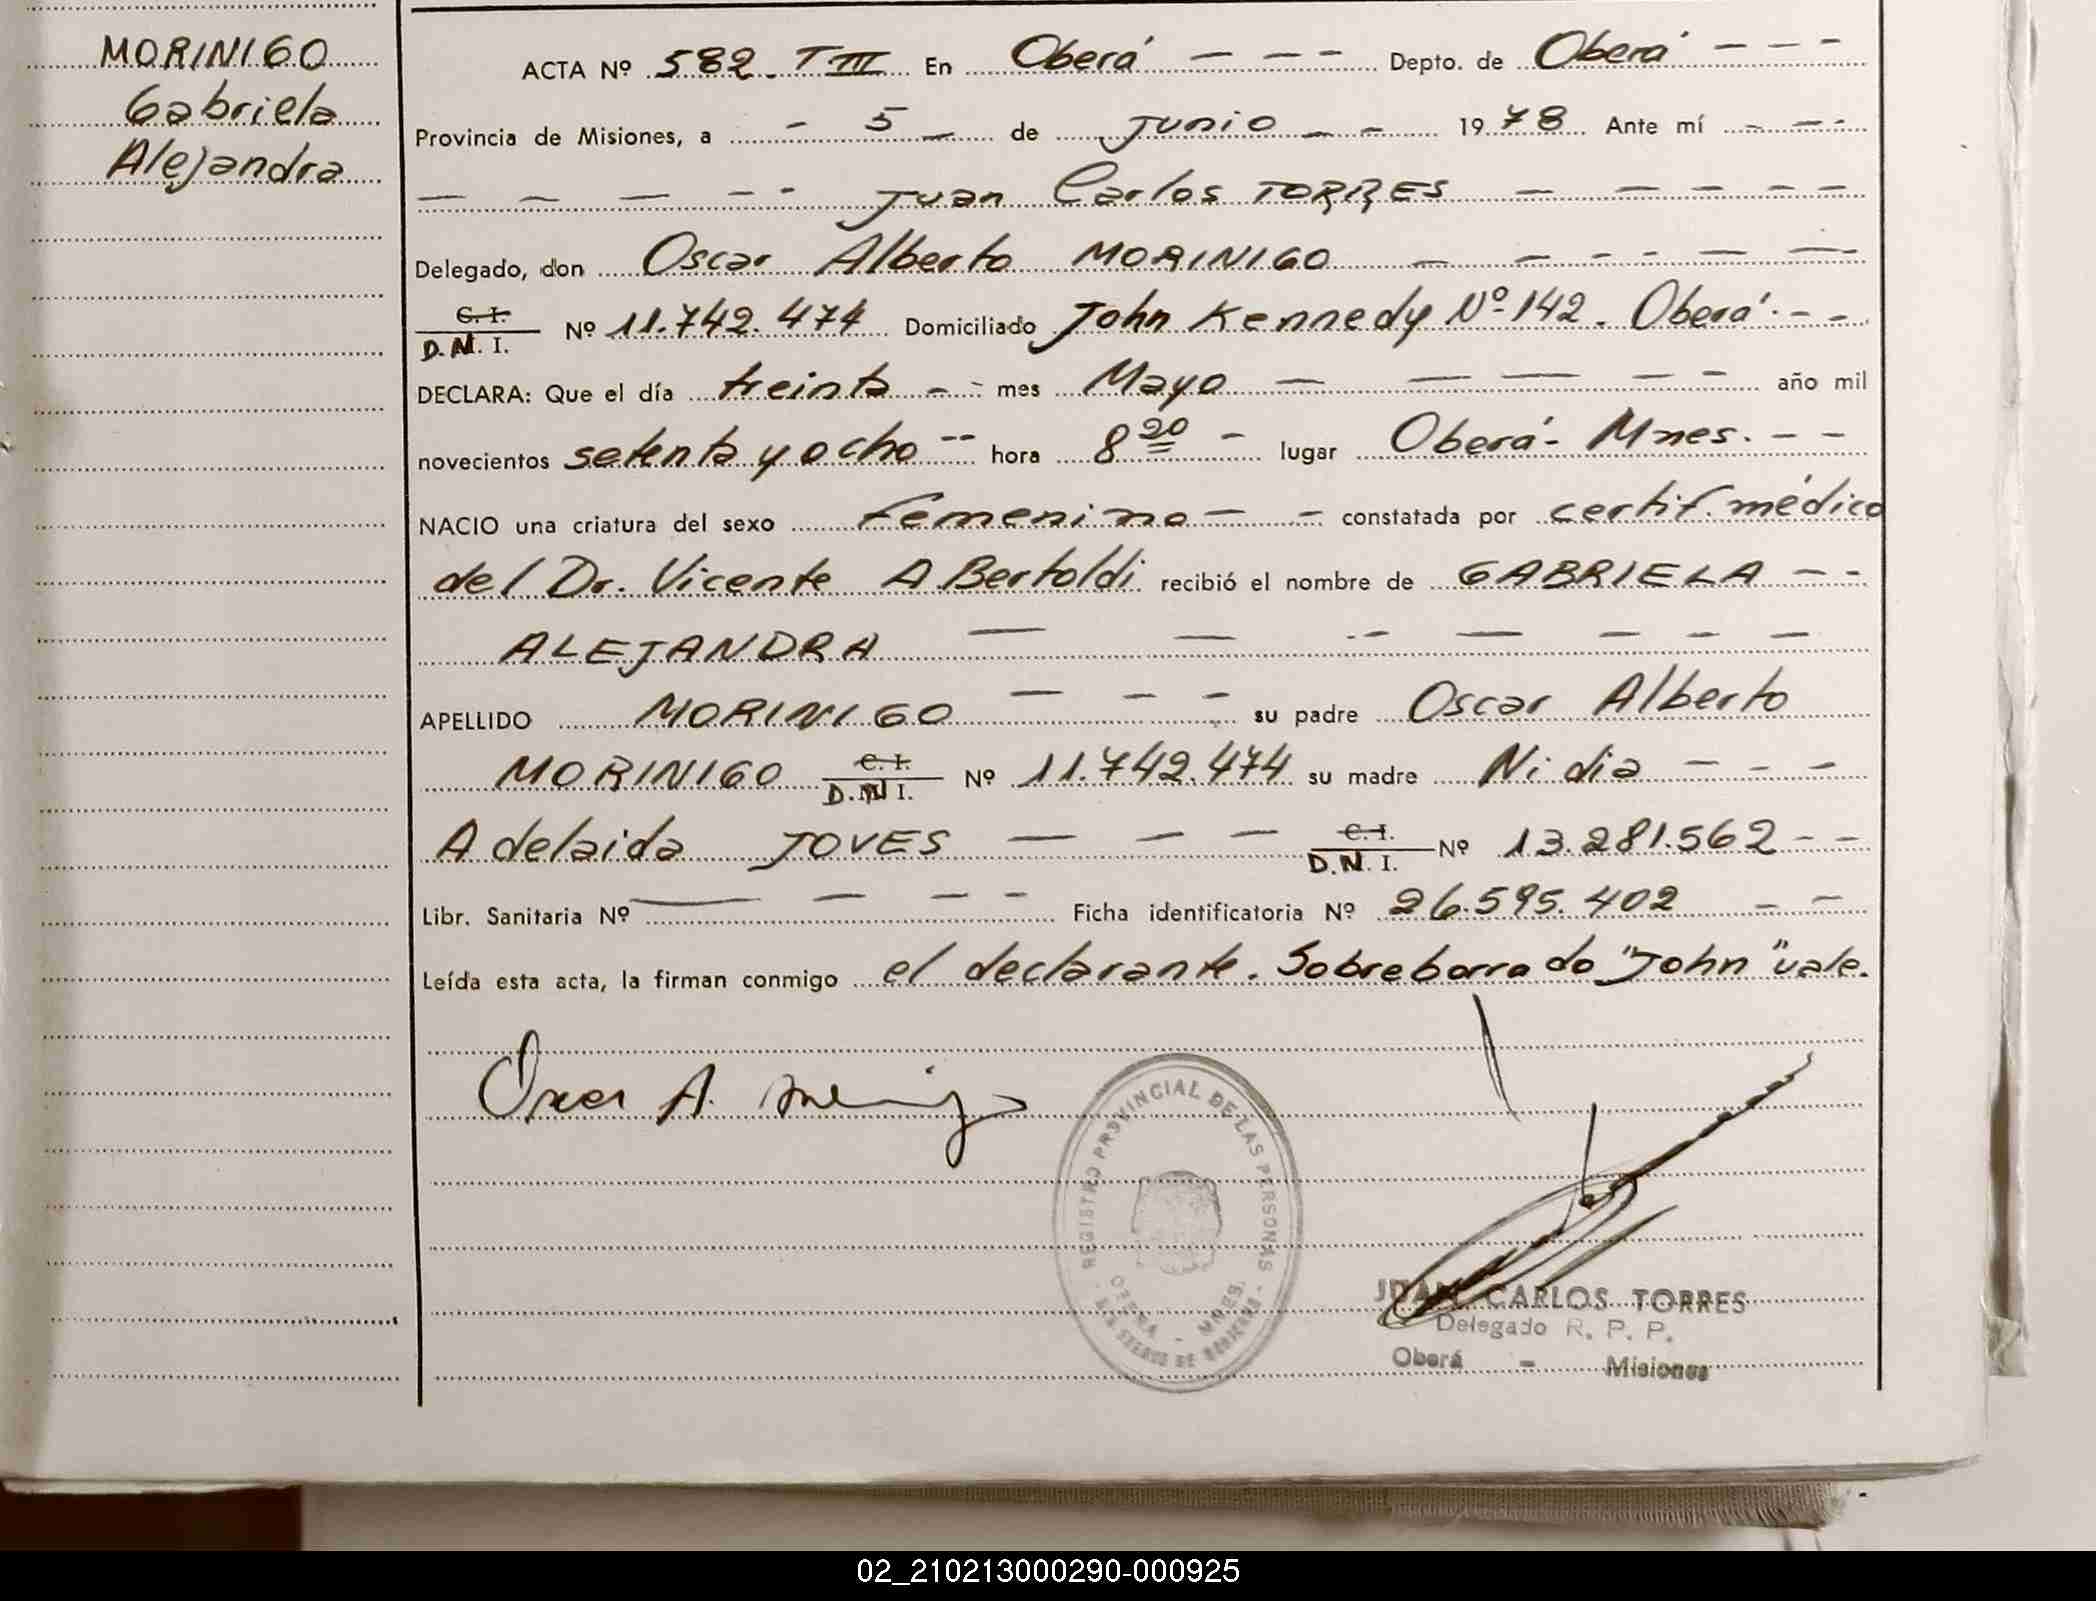 MORINIGO
Gabriela
Alejandra
ACTA Nº 582. T III En Oberá - - - - Depto. de Oberá - - -
Provincia de Misiones, a - 5 - de Junio - - 1978 Ante mí - - -
- - - - - Juan Carlos TORRES - - - - -
Delegado, don Oscar Alberto MORINIGO - - - - - -
C. I.
D.N. I. Nº 11.742.474 Domiciliado John Kennedy Nº 142. Oberá. - -
DECLARA: Que el día treinta - - mes Mayo - - - - - año mil
novecientos setenta y ocho -- hora 8 20 - lugar Oberá - Mnes. - -
NACIO una criatura del sexo Femenino - - constatada por certif. médico
del Dr. Vicente A. Bertoldi recibió el nombre de GABRIELA - -
ALEJANDRA - - - - - - -
APELLIDO MORINIGO - - - su padre Oscar Alberto
MORINIGO C. I. D.N I. Nº 11.742.474 su madre Nidia - - -
Adelaida JOVES - - - C. I. D.N. I. Nº 13.281.562 - -
Libr. Sanitaria Nº - - - - Ficha identificatoria Nº 26.595.402 - -
Leída esta acta, la firman conmigo el declarante. Sobreborrado "John" vale.
Oscar A.
REGISTRO PROVINCIAL DE LAS PERSONAS
OBERA - MNES.
JUAN CARLOS TORRES
Delegado R. P. P.
Oberá - Misiones
02_210213000290-000925